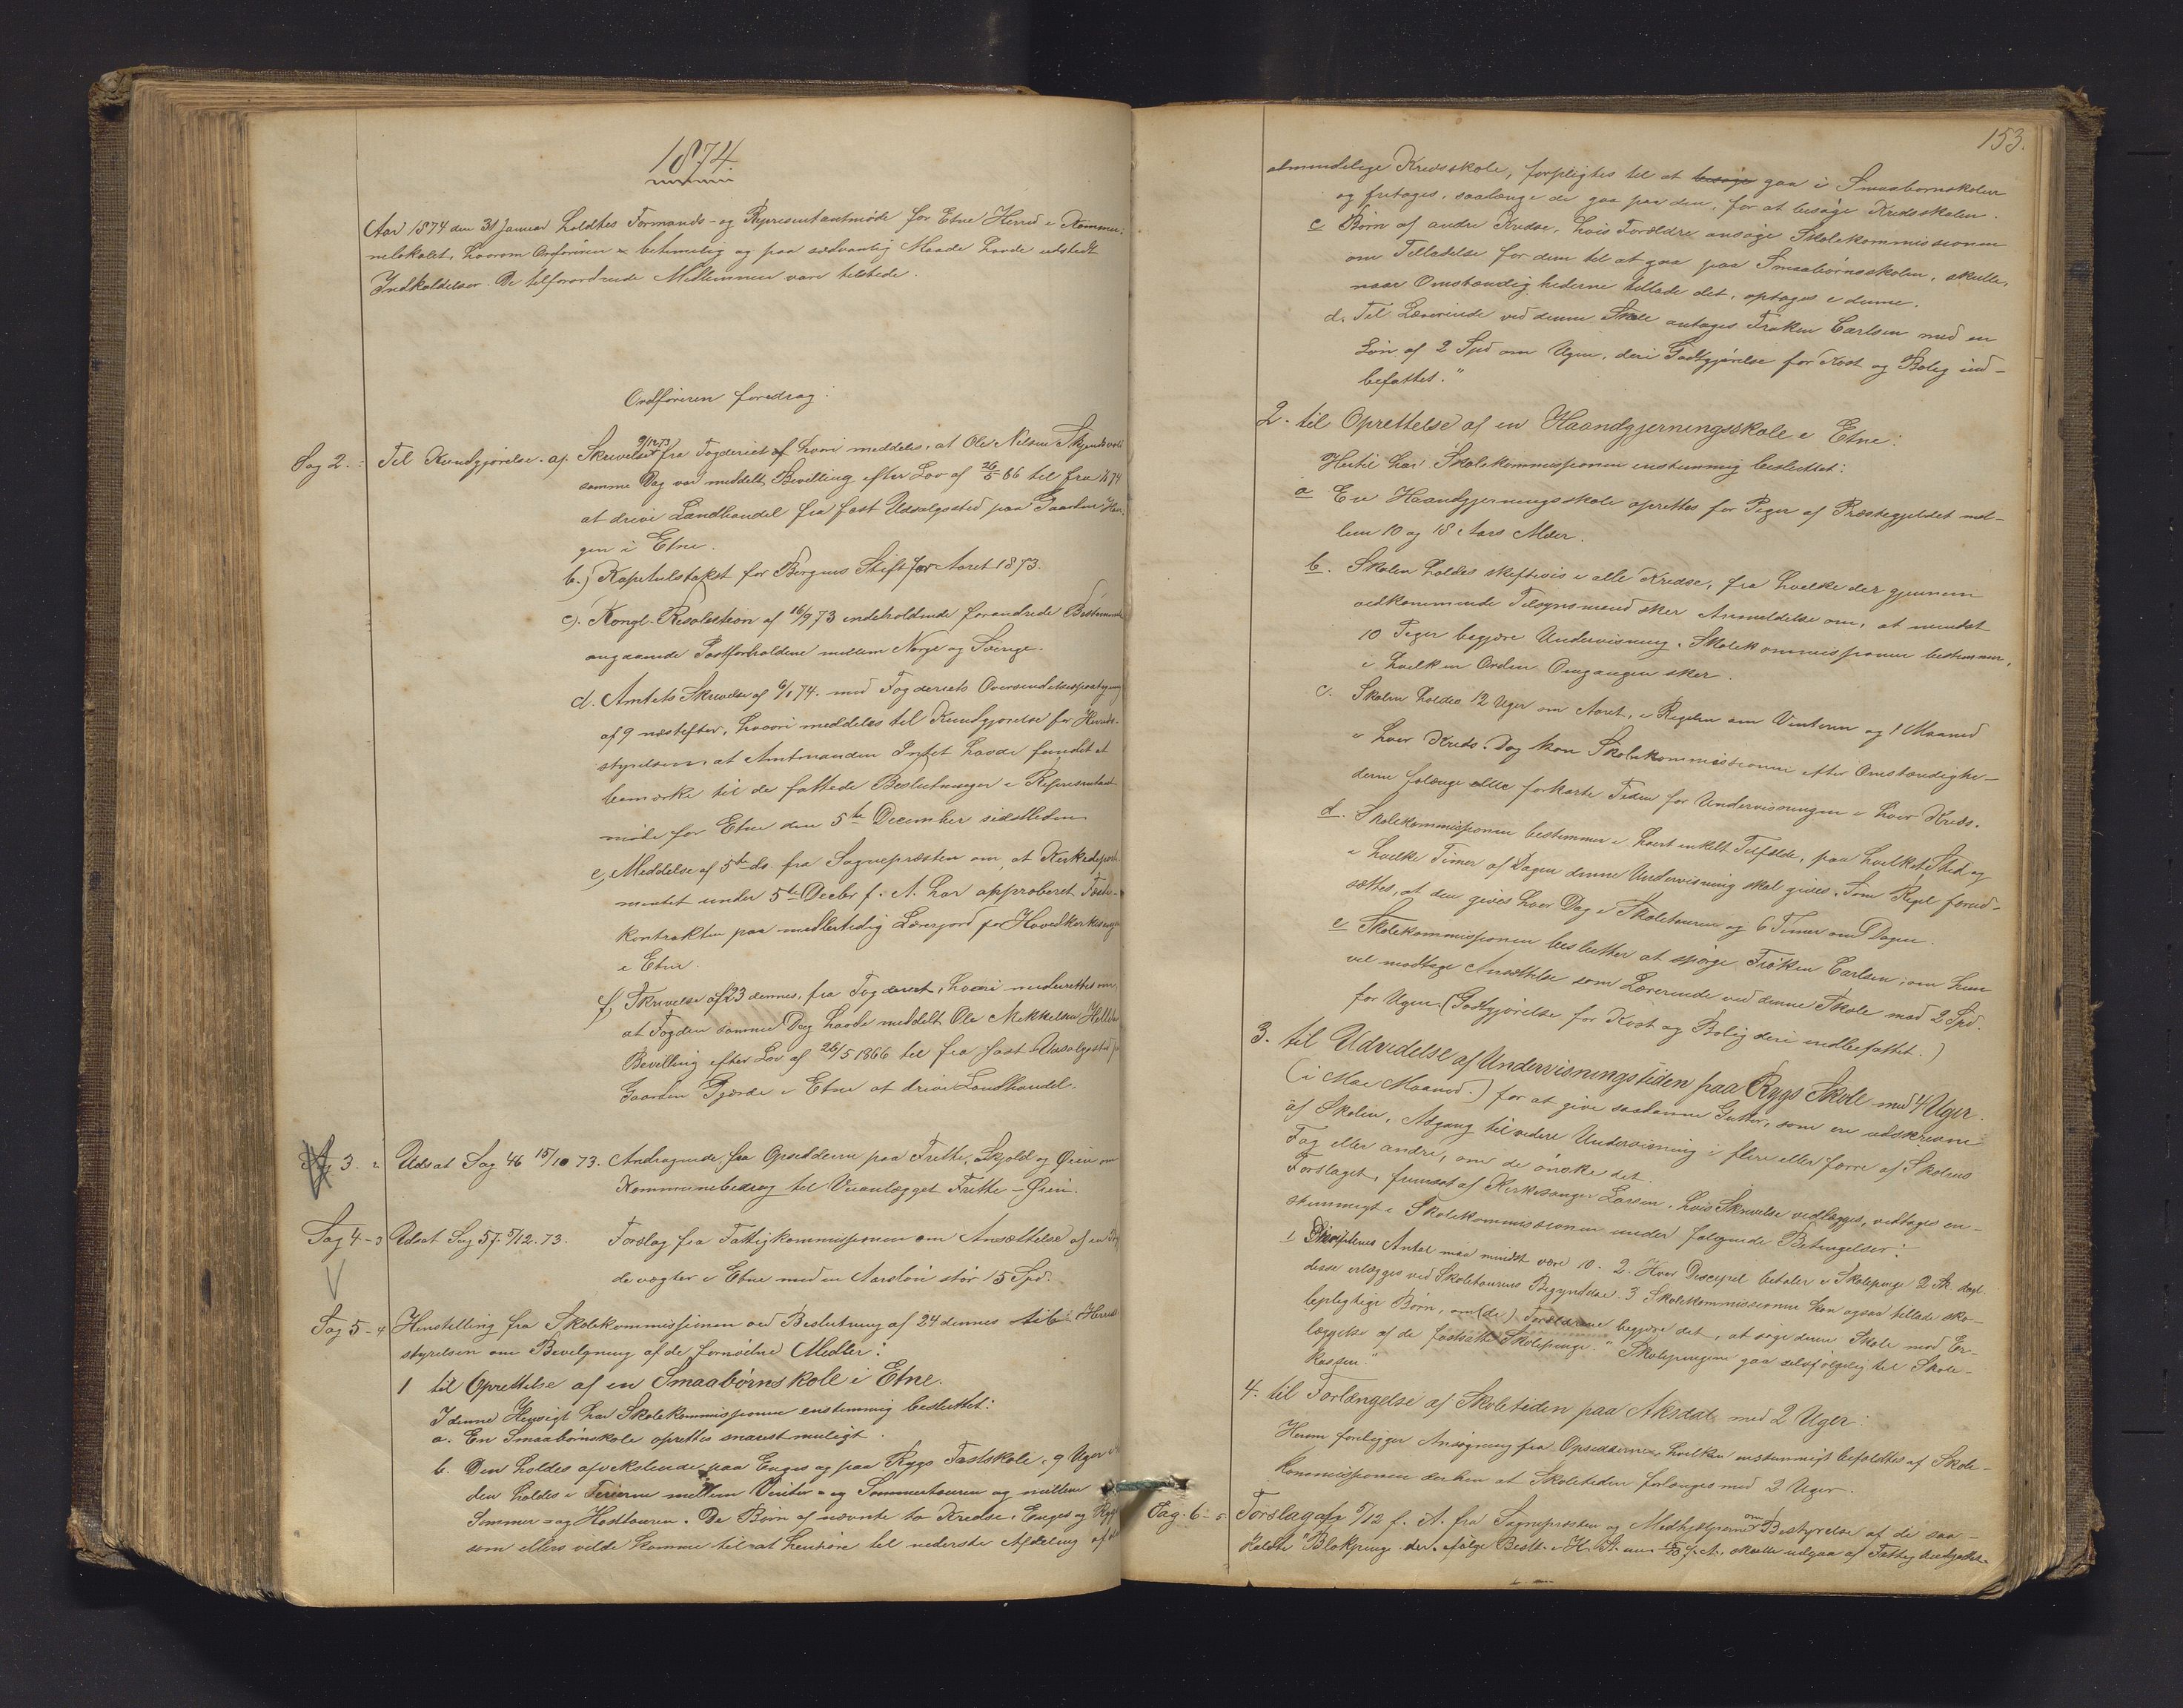 1874.
Aar 1874 den 31 Januar holdtes Formands- og Representantmöde for Etne Herred i Kommu-
nelokalet, hvorom Ordföreren betimelig og paa sædvanlig Maade havde udstedt
Indkaldelser. De tilforordnede Medlemmer vare tilstede.
Ordföreren foredrog:
Sag 2. : Til Kundgjörelse. a). Skrivelse 9/12 73 fra Fogderiet hvori meddeles, at Ole Nilsen
samme Dag var meddelt Bevilling efter Lov af 26/5 66 til fra 1874
at drive Landhandel fra fast Udsalgssted paa Gaarden
gen i Etne.
b.) Kapitulstakst for Bergens Stift for Aaret 1873.
c). Kongl. Resolution af 16/9 73 indeholdende forandrede Bestemmel
angaaende Postforholdene mellem Norge og Sverige.
d. Amtets Skrivelse af 6/1 74. med Fogderiets Oversendelsespaategning
af 9 næstefter, hvori meddeles til Kundgjörelse for Herreds-
styrelsen, at Amtmanden Intet havde fundet at
bemærke til de fattede Beslutninger i Representant
möde for Etne den 5te December sidstleden
e, Meddelse af 5te ds. fra Sognepræsten om, at Kirkedepart
mentet under 5te Decbr f. A. har approberet Fæste-
kontrakten paa midlertidig Lærerjord for Hovedkirkesogn
i Etne.
f, Skrivelse af 23 dennes, fra Fogderiet, hvori underrettes om,
at Fogden samme Dag havde meddelt Ole Mikkelsen
Bevilling efter Lov af 26/5 1866 til fra fast Udsalgssted
Gaarden Gjerde i Etne at drive Landhandel.
Sag 3. 2 Udsat Sag 46 15/10 73. Andragende fra Opsidderne paa Frette, Skjold og Öien om
Kommunebidrag til Veianlægget Frette-Öien.
Sag 4-3 Udsat Sag 57. 5/12. 73. Forslag fra Fattigkommissionen om Ansættelse af en
devægter i Etne med en Aarslön stor 15 Spd.
Sag 5-4 Henstilling fra Skolekommissionen ved Beslutning af 24 dennes til Herreds
styrelsen om Bevilgning af de fornödne Midler:
1 til Oprettelse af en Smaabörnskole i Etne.
I denne Hensigt har Skolekommissionen enstemmig besluttet:
a. En Smaabörnskole oprettes snarest muligt.
b. Den holdes afvekslende paa Enges og paa Rygs Fastskole, 9 Uger
den holdes i Ferierne mellem Vinter- og Sommertouren og mellem
Sommer- og Hösttouren. De Börn af nævnte to Kredse, Enges og Rygs
som ellers vilde komme til at henhöre til nederste Afdeling af
153.
almindelige Kredsskole, forpligtes til at besöge gaa i Smaabornskolen
og fritages, saalænge de gaa paa den, for at besöge Kredsskolen.
c Börn af andre Kredse, hvis Forældre ansöge Skolekommissionen
om Tilladelse for dem til at gaa paa Smaabörnsskolen, skulle,
naar Omstændighederne tillade det, optages i denne.
d. Til Lærerinde ved denne Skole antages Fröken Carlsen med en
Lön af 2 Spd om Ugen, deri Godtgjörelse for Kost og Bolig ind-
befattet."
2. til Oprettelse af en Haandgjerningsskole i Etne:
Hertil har Skolekommissionen enstemmig besluttet:
a En Haandgjerningsskole oprettes for Piger af Præstegjeldet mel-
lem 10 og 18 Aars Alder.
b. Skolen holdes skiftevis i alle Kredse, fra hvilke der gjennem
vedkommende Tilsynsmand sker Anmeldelse om, at mindst
10 Piger begjære Undervisning. Skolekommissionen bestemmer,
i hvilken Orden Omgangen sker.
c. Skolen holdes 12 Uger om Aaret, i Regelen om Vinteren og 1 Maaned
i hver Kreds. Dog kan Skolekommissionen efter Omstændighe-
derne forlænge eller forkorte Tiden for Undervisningen i hver Kreds.
d. Skolekommissionen bestemmer i hvert enkelt Tilfælde, paa hvilket Sted og
i hvilke Timer af Dagen denne Undervisning skal gives. Som Regel forud-
sættes, at den gives hver Dag i Skoletouren og 6 Timer om Dagen.
e Skolekommissionen beslutter at spörge Fröken Carlsen, om hun
vil modtage Ansættelse som Lærerinde ved denne Skole med 2 Spd.
for Ugen. (Godtgjörelse for Kost og Bolig deri indbefattet.)
3. til Udvidelse af Undervisningstiden paa Rygs Skole med 4 Uger.
(i Mai Maaned.) for at give saadanne Gutter, som ere udskrevne
af Skolen, Adgang til videre Undervisning i flere eller færre af Skolens
Fag eller andre, om de önske det.
Forslaget, fremsat af Kirkesanger Larsen, hvis Skrivelse vedlægges, vedtages en-
stemmigt i Skolekommissionen under fölgende Betingelser:
1 Disciplenes Antal maa mindst være 10. 2. Hver Discipel betaler i Skolepenge 2
disse erlægges ved Skoletourens Begyndelse. 3 Skolekommissionen kan ogsaa tillade sko-
lepligtige Börn, om (de) Forældrene begjære det, at söge denne Skole mod Er-
læggelse af de fastsatte Skolepenge." Skolepengene gaa selvfölgelig til Skole-
kassen."
4. til Forlængelse af Skoletiden paa Aksdal med 2 Uger:
Herom foreligger Ansögning fra Opsidderne, hvilken enstemmigt befattes af Skole-
kommissionen at Skoletiden forlænges med 2 Uger.
Sag. 6-5 Forslag af 5/12 f. A. fra Sognepræsten og Medhjælperne om Bestyrelse af de saa-
kaldte Blokpenge der, ifölge Beslt. i H. St. f. A., skulle udgaa af Fattig budgettet.